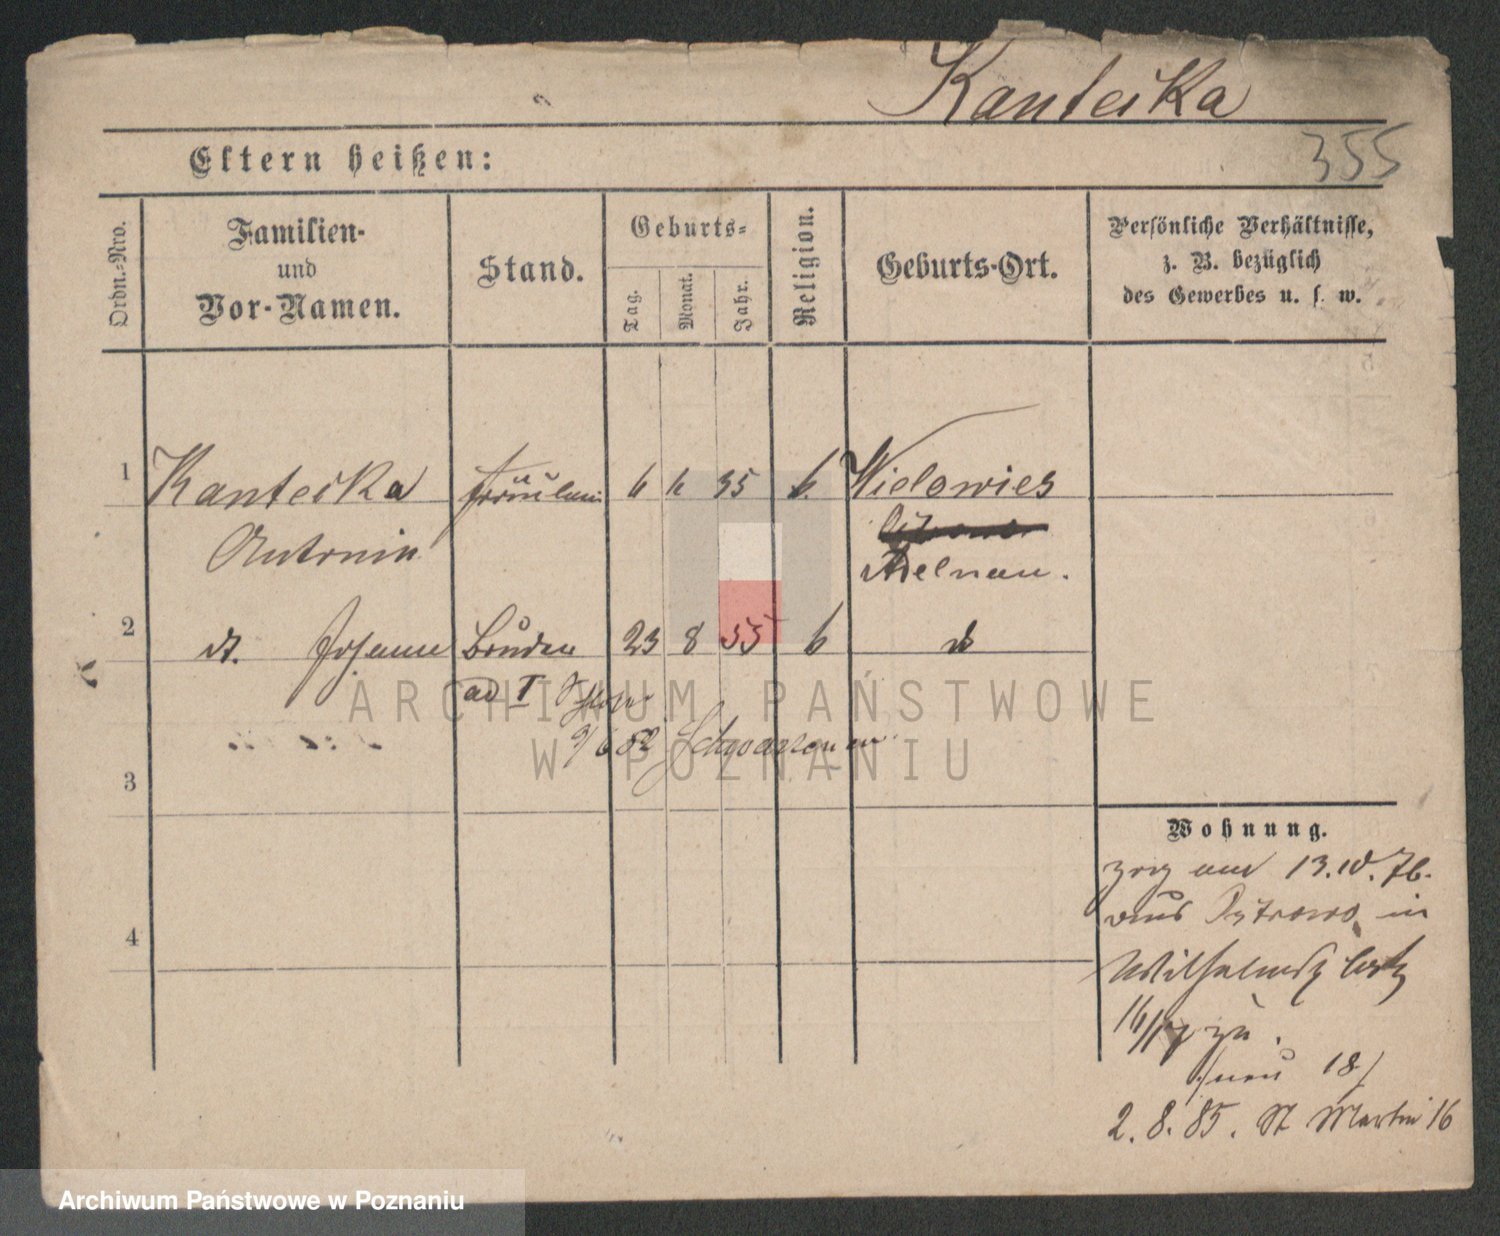 Kanteika
355
Eltern heißen:
Ordn.-Nro.
Familien-
und
Vor-Namen.
Stand.
Geburts-
Tag.
Monat.
Jahr.
Religion.
Geburts-Ort.
Persönliche Verhältnisse,
z. B. bezüglich
des Gewerbes u. s. w.
1 Kanteika Fräulein 6 6 35 k. Wielowies
Antonin
Adelnau.
2 dt. Johann Bruder 23 8 55 k do
ad I
9/6 52
3
4
Wohnung.
zog am 13.10.76.
aus Ostrowo in
Wilhelmsplatz
16/17 zu.
/neu 18/
2.8.85. St Martin 16
ARCHIWUM PAŃSTWOWE
W POZNANIU
Archiwum Państwowe w Poznaniu